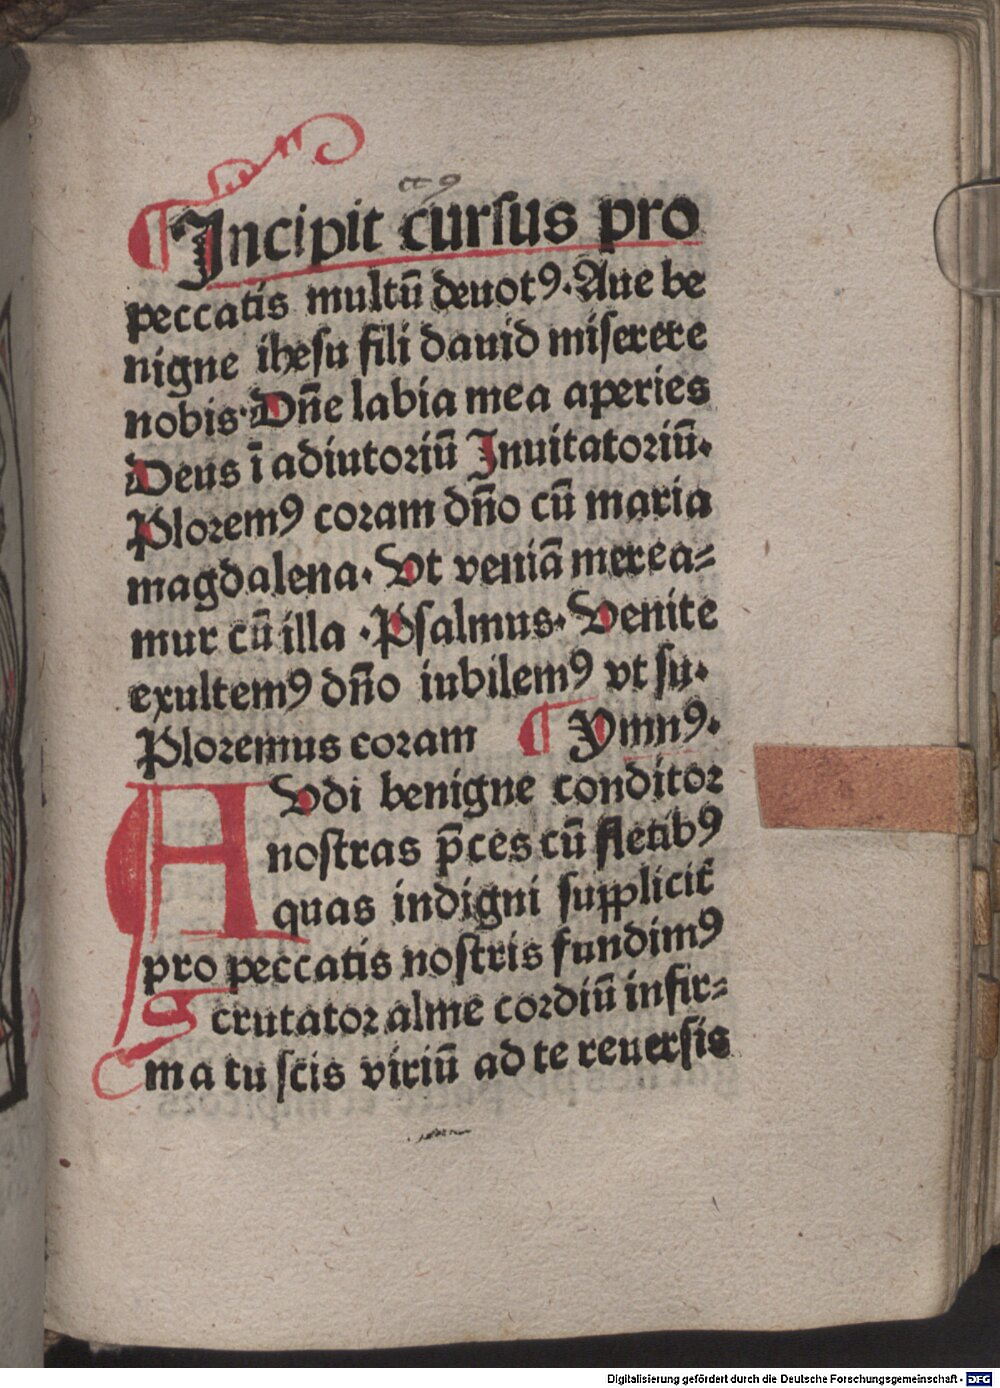 Incipit cursus pro
peccatis multū deuotꝰ. Aue be
nigne ihesu fili dauid miserere
nobis. Dn̄e labia mea aperies
Deus ī adiutoriū Inuitatoriū.
Ploremꝰ coram dn̄o cū maria
magdalena. Vt veniā merea⸗
mur cū illa . Psalmus. Venite
exultemꝰ dn̄o iubilemꝰ vt su.
Ploremus coram ¶ Ymnꝰ.
AVdi benigne conditor
nostras p̄ces cū fletibꝰ
quas indigni supplicit̄
pro peccatis nostris fundimꝰ
Scrutator alme cordiū infir⸗
ma tu scis viriū ad te reuersis
Digitalisierung gefördert durch die Deutsche Forschungsgemeinschaft - DFG